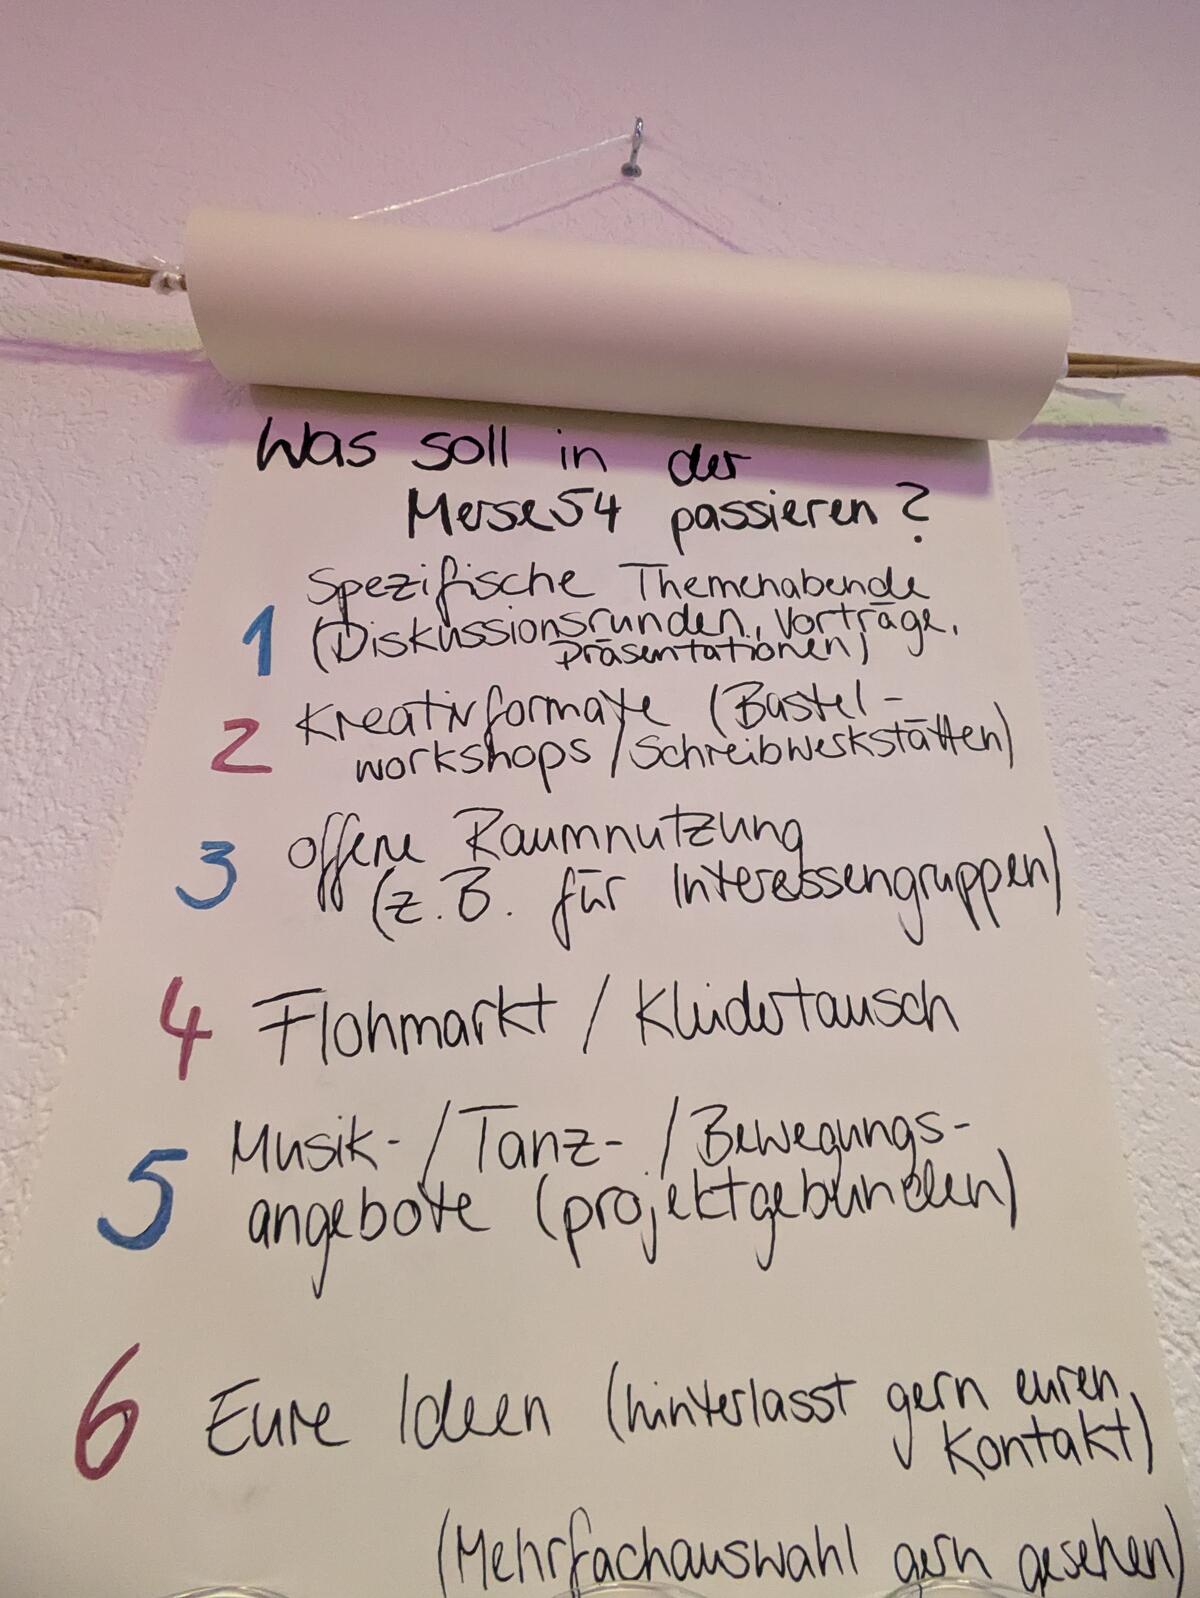 Was soll in der
Merse54 passieren?
1 Spezifische Themenabende
(Diskussionsrunden, Vorträge,
Präsentationen)
2 Kreativformate (Bastel-
workshops / Schreibwerkstätten)
3 offene Raumnutzung
(z.B. für Interessengruppen)
4 Flohmarkt / Kleidertausch
5 Musik- / Tanz- / Bewegungs-
angebote (projektgebunden)
6 Eure Ideen (hinterlasst gern euren
Kontakt)
(Mehrfachauswahl gern gesehen)